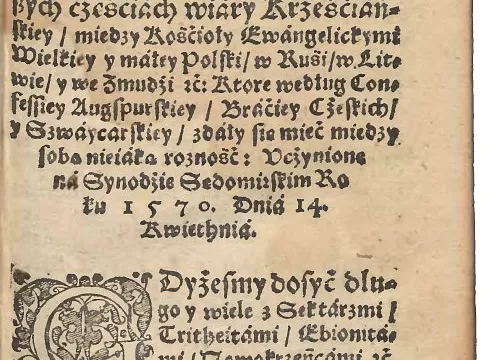 ßych częściách wiáry Krześciáń⸗
skiey / miedzy Kośćioły Ewángelickymi
Wielkiey y máłey Polski / w Ruśi / w Lit⸗
wie / y we Zmudźi ꝛč: Ktore według Con⸗
fessiey Augspurskiey / Bráćiey Cżeskich /
y Szwáycárskiey / zdáły sie mieć miedzy
sobą nieiáką rozność: Vcżynione
ná Synodźie Sędomirskim Ro
ku 1570. Dniá 14.
Kwiethniá.
GDyżesmy dosyć dłu⸗
go y wiele z Sektárzmi /
Tritheitámi / Ebionitá⸗
mi / Nowokrzeńcámi ꝛč